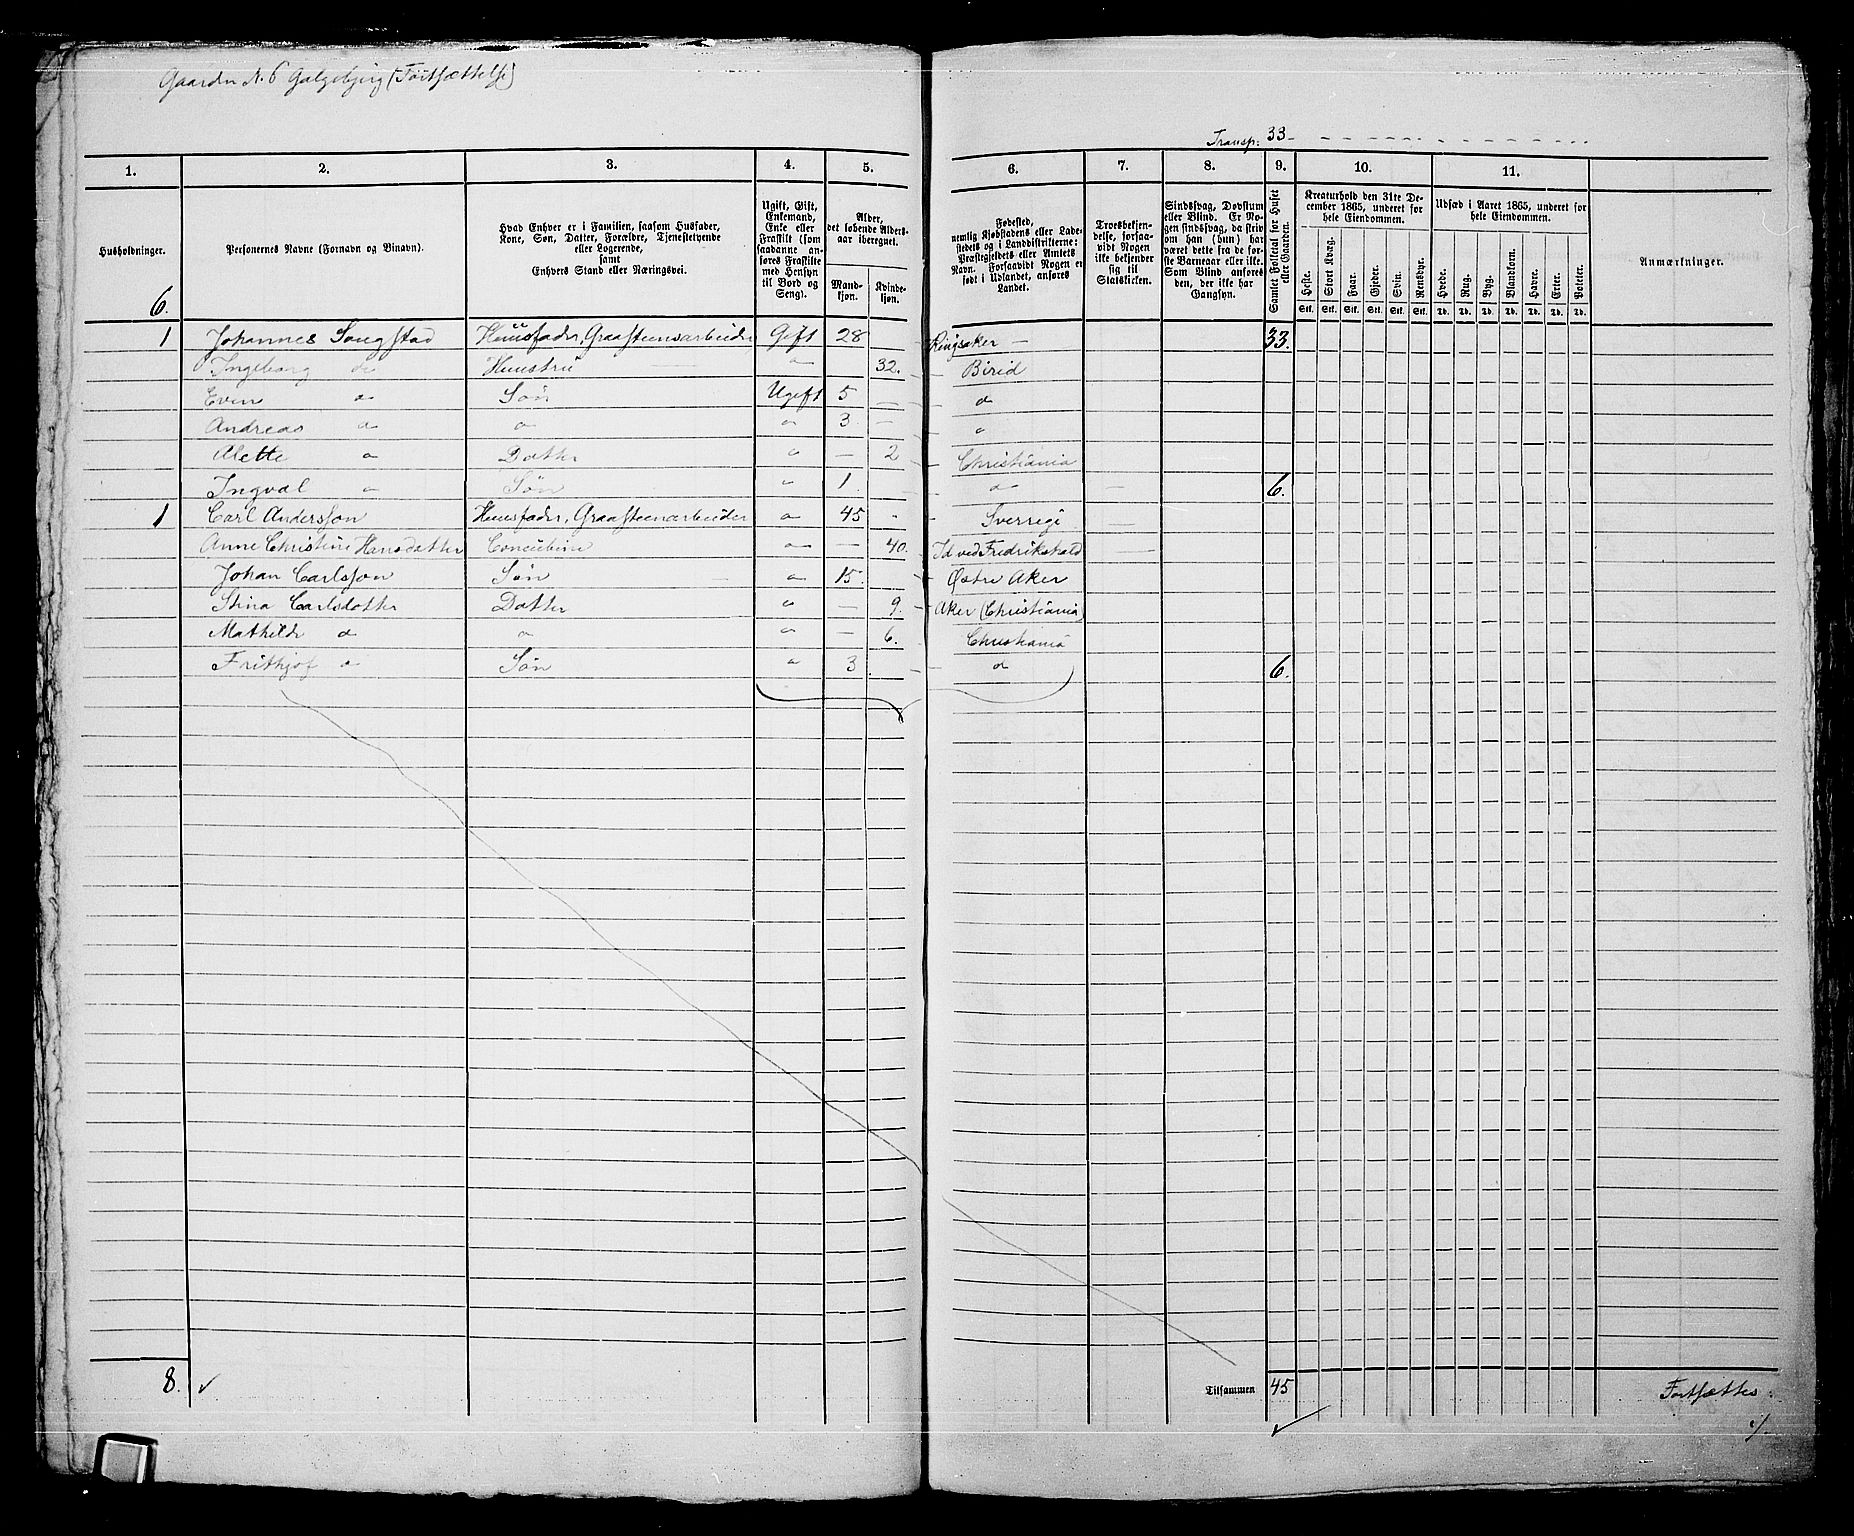 Gaarden N. 6 Galgebjerg (Fortsættelse)
Transp: 33
1. 2. 3. 4. 5. 6. 7. 8. 9. 10. 11.
Husholdninger.
6.
Personernes Navne (Fornavn og Binavn).
Hvad Enhver er i Familien, saasom Husfader,
Kone, Søn, Datter, Forældre, Tjenestetyende
eller Logerende,
samt
Enhvers Stand eller Næringsvei.
Ugift, Gift,
Enkemand,
Enke eller
Fraskilt (som
saadanne an-
føres Fraskilte
med Hensyn
til Bord og
Seng).
Alder,
det løbende Alders-
aar iberegnet.
Mand-
kjøn.
Kvinde-
kjøn.
Fødested,
nemlig Kjøbstadens eller Lade-
stedets og i Landdistrikterne:
Præstegjeldets eller Amtets
Navn. Forsaavidt Nogen er
født i Udlandet, anføres
Landet.
Troesbekjen-
delse, forsaa-
vidt Nogen
ikke bekjender
sig til
Statskirken.
Sindssvag, Døvstum
eller Blind. Er No-
gen sindssvag, da skriv
om han (hun) har
været dette fra de før-
ste Barneaar eller ikke.
Som Blind anføres
den, der ikke har
Gangsyn.
Samlet Folketal for Huset
eller Gaarden.
Kreaturhold den 31te De-
cember 1865, underet for
hele Eiendommen.
Heste. Stort Kvæg. Faar. Gjeder. Svin. Rensdyr.
Stk. Stk. Stk. Stk. Stk. Stk.
Udsæd i Aaret 1865, underet for
hele Eiendommen.
Hvede. Rug. Byg. Blandkorn. Havre. Erter. Poteter.
Td. Td. Td. Td. Td. Td. Td.
Anmærkninger.
1 Johannes Sougstad Huusfader, Graasteensarbeider Gift 28 Ringsaker 33.
Ingeborg do Huustru " 32. Birid
Even " Søn Ugift 5 "
Andreas " " " 3. "
Alette " Datter " 2 Christiania
Ingval " Søn " 1. " 6.
1 Carl Andersson Huusfader, Graasteenarbeider " 45 Sverrige
Anne Christine Hansdatter Concubine " 40. Id ved Fredrikshald
Johan Carlsson Søn " 15. Østre Aker
Stina Carlsdatter Datter " 9. Aker (Christiania)
Mathilde " " " 6. Christiania
Frithjof " Søn " 3 " 6.
8.
Tilsammen 45
Fortsættes